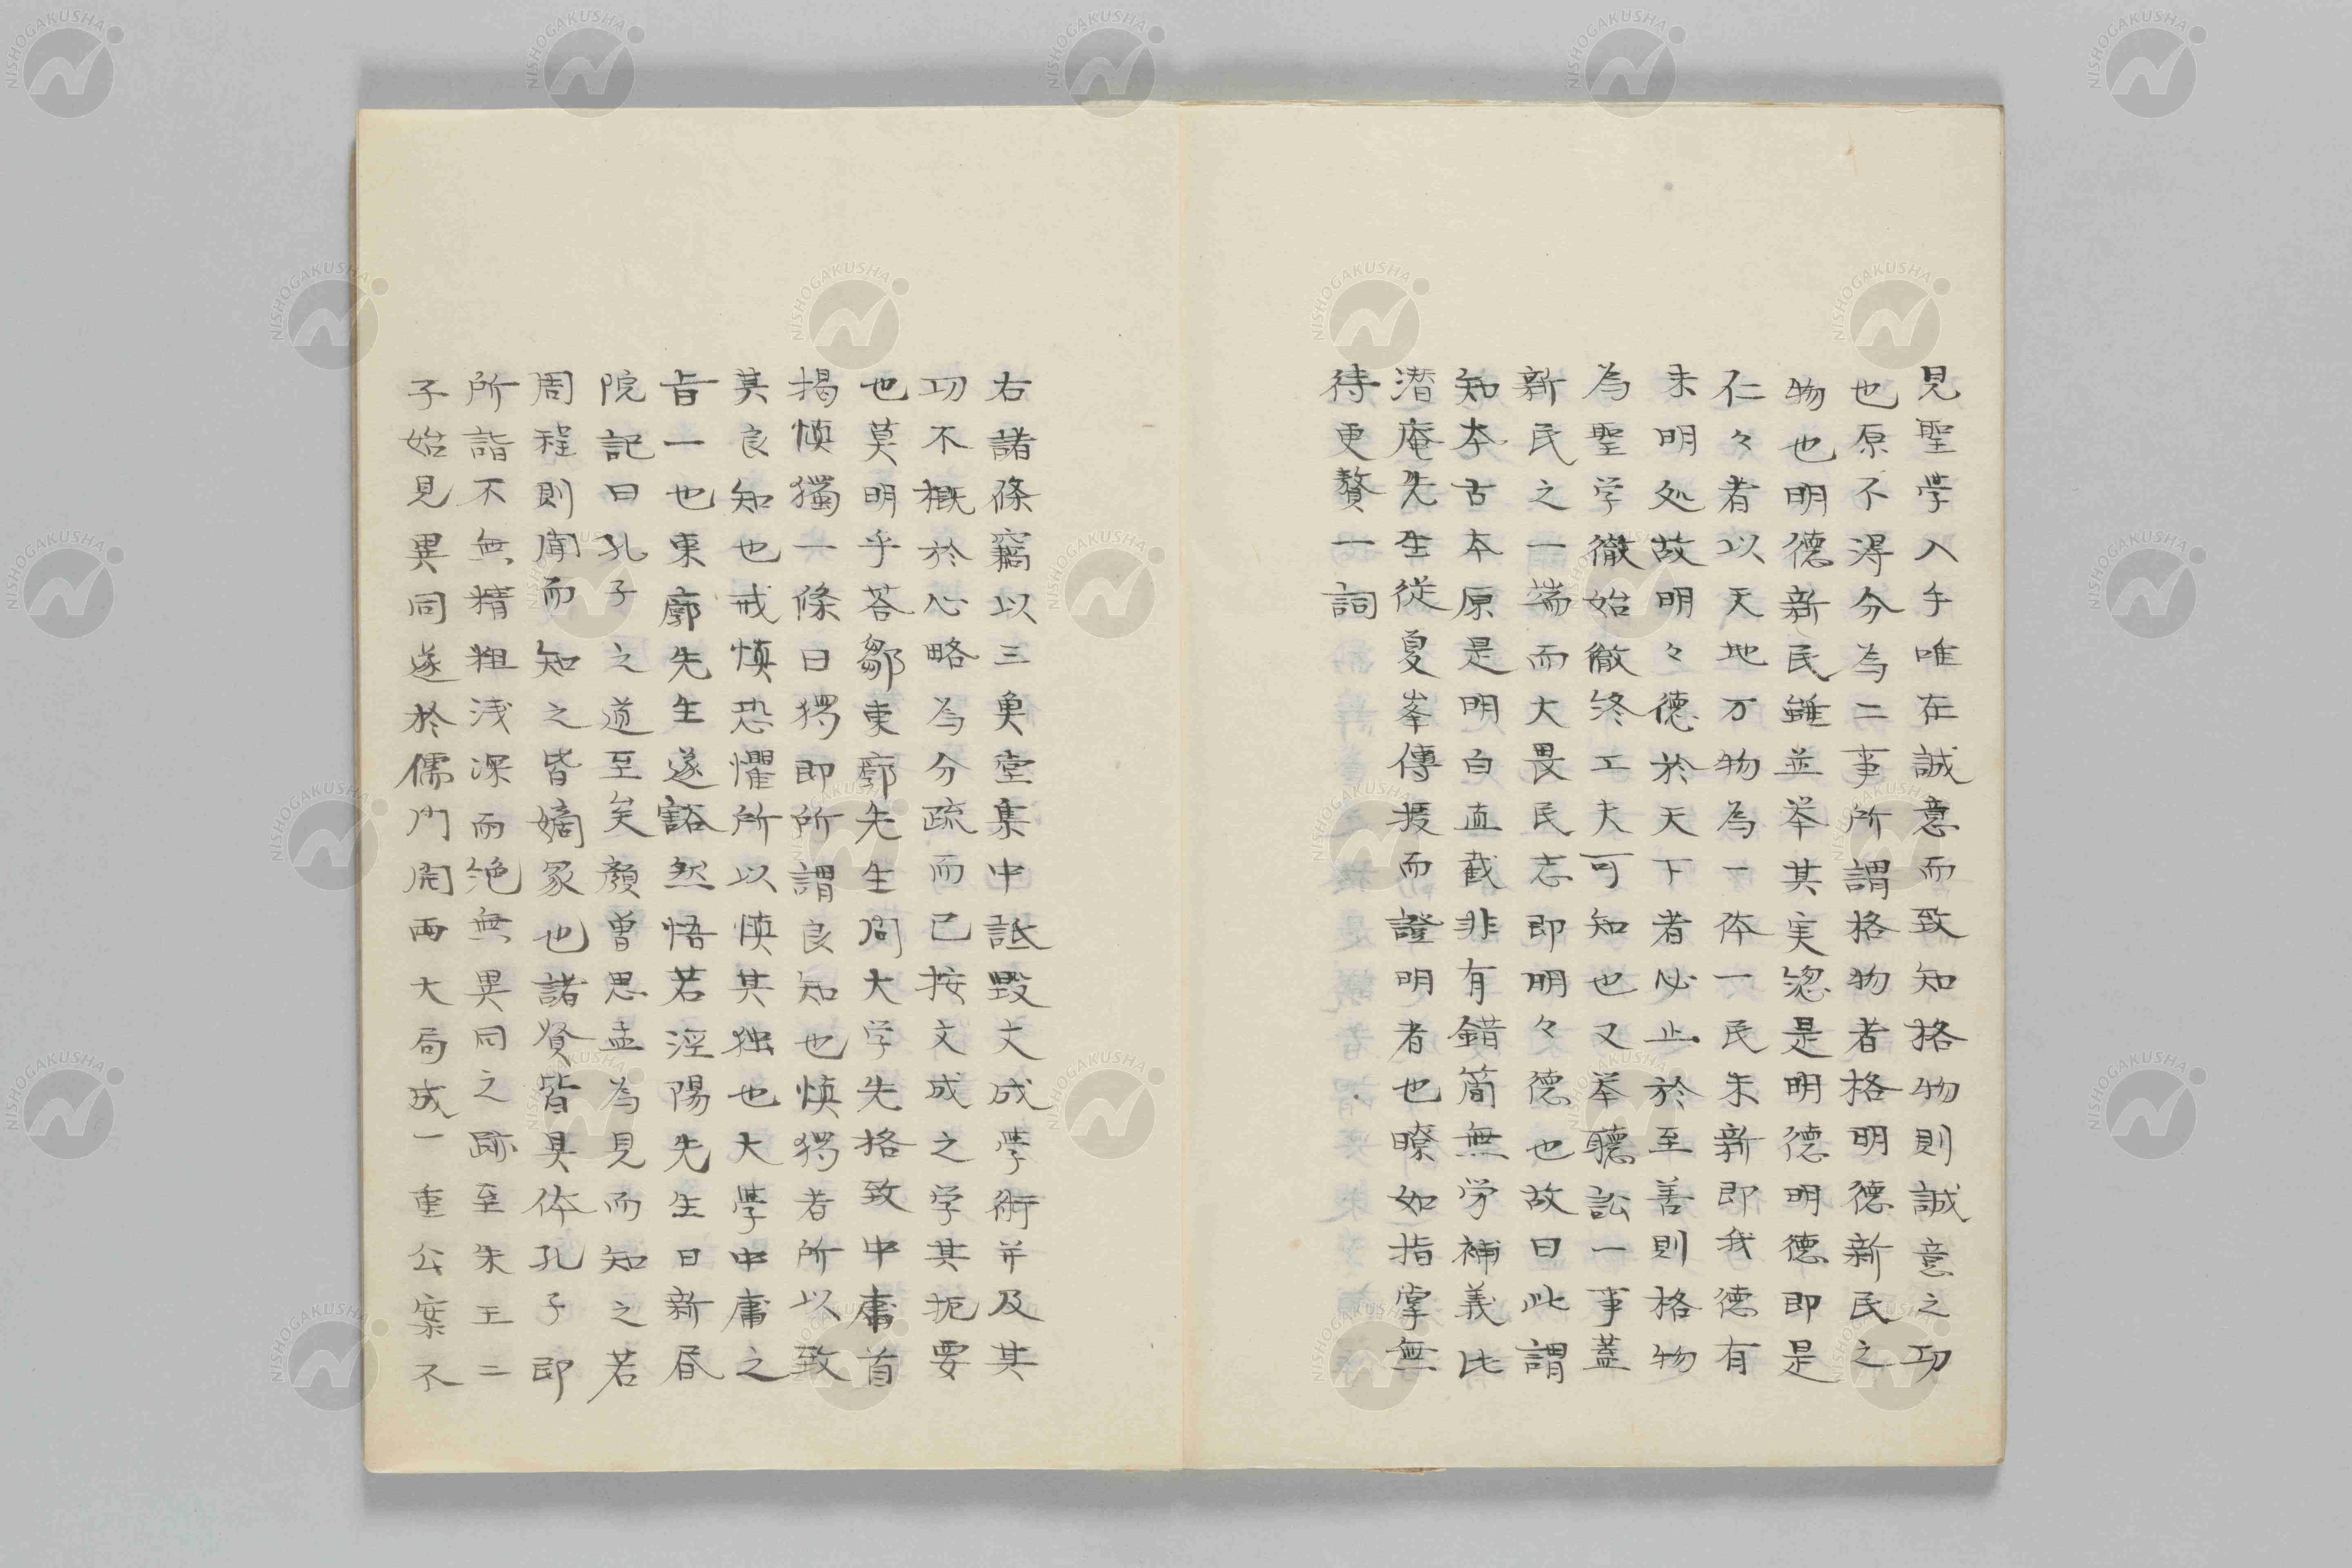 見聖学入手唯在誠意而致知格物則誠意之功
也原不得分為二事所謂格物者格明德新民之
物也明德新民雖並举其実総是明德明德即是
仁々者以天地万物為一体一民未新即我德有
未明処故明々德於天下者必止於至善則格物
為聖学徹始徹終工夫可知也又举聽訟一事蓋
新民之一端而大畏民志即明々德也故曰此謂
知本古本原是明白直截非有錯簡無労補義比
潜庵先生從夏峯傳授而證明者也瞭如指掌無
待更贅一詞
右諸條竊以三魚堂集中詆毀文成学術并及其
功不概於心略為分疏而已按文成之学其扼要
也莫明乎荅鄒東廓先生問大学先格致中庸首
揭慎獨一條曰独即所謂良知也慎独者所以致
其良知也戒慎恐懼所以慎其独也大学中庸之
旨一也東廓先生遂豁然悟若涇陽先生日新書
院記曰孔子之道至矣顏曽思孟為見而知之若
周程則聞而知之皆嫡冢也諸贤皆具体孔子即
所詣不無精粗浅深而绝無異同之跡至朱王二
子始見異同遂於儒門開両大局成一重公案不
NISHOGAKUSHA